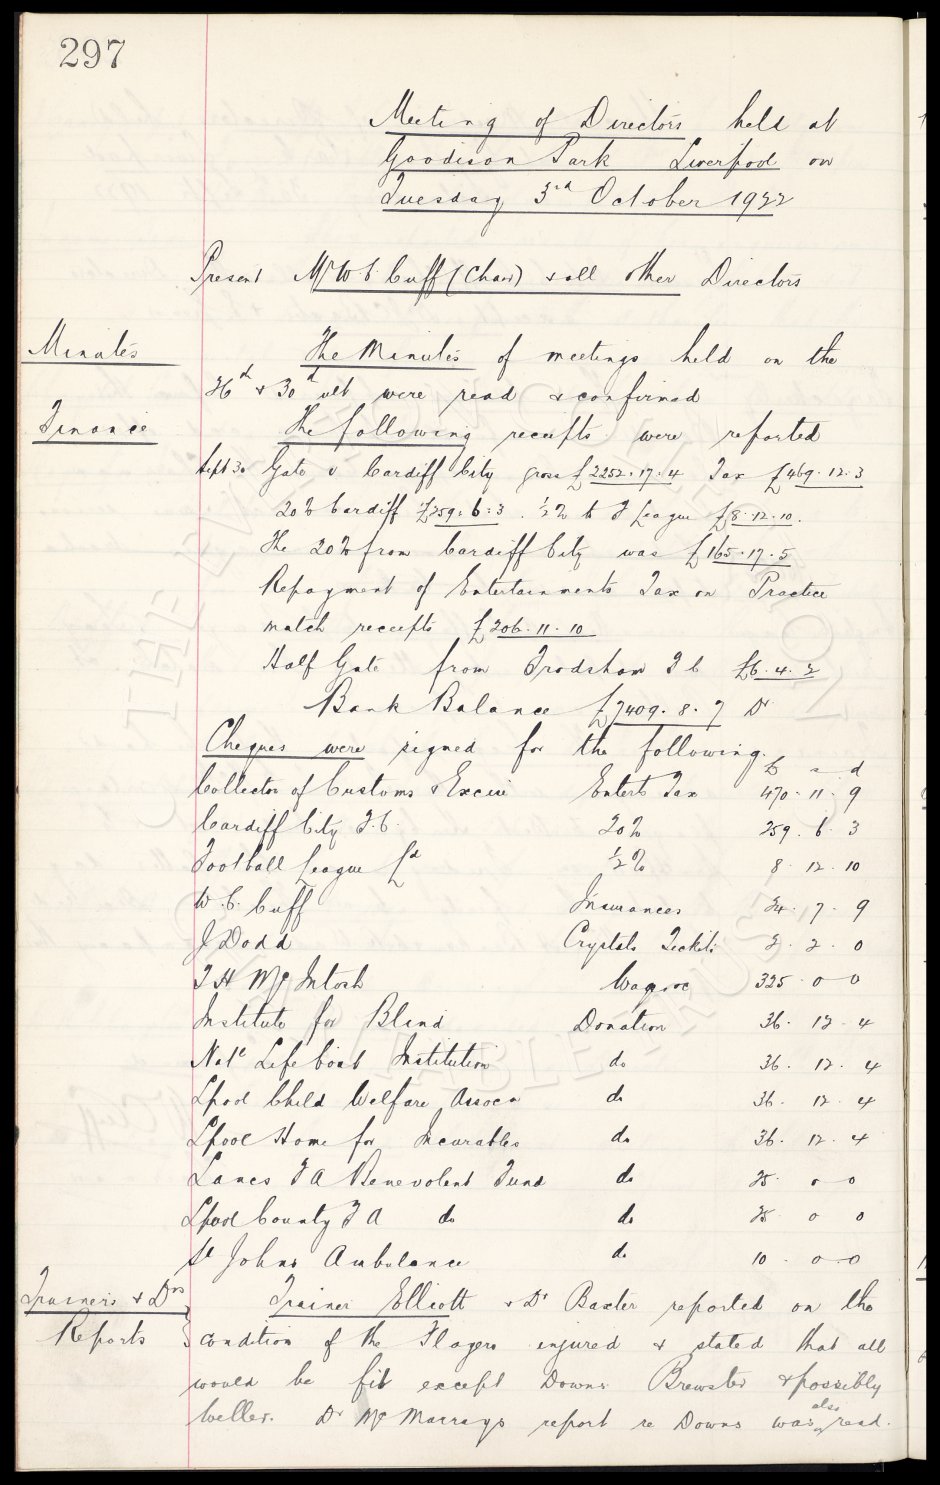 297
Meeting of Directors held at
Goodison Park Liverpool on
Tuesday 3rd October 1922
Present Mr W C Cuff (Chair) & all other Directors
Minutes
The Minutes of meetings held on the
26th & 30th ult were read & confirmed
Finance
The following receipts were reported
Sept 30 Gate v Cardiff City gross £2252.17.4 Tax £469.12.3
20% Cardiff £259.6.3. ½% to F League £8.12.10.
The 20% from Cardiff City was £165.17.5
Repayment of Entertainments Tax on Practice
match receipts £206.11.10
Half Gate from Frodsham F C £6.4.2
Bank Balance £7409.8.7 Dr
Cheques were signed for the following.
£ s d
Collector of Customs & Excise Enterts Tax 470.11.9
Cardiff City F.C. 20% 259.6.3
Football League Ld ½% 8.12.10
W.C. Cuff Insurances 24.7.9
J Dodd Crystals Tickets 2.2.0
T H McIntosh Wages 325.0.0
Institute for Blind Donation 36.12.4
Natl Life boat Institution do 36.12.4
Lpool Child Welfare Assocn do 36.12.4
Lpool Home for Incurables do 36.12.4
Lancs F A Benevolent Fund do 25.0.0
Lpool County F A do do 25.0.0
St Johns Ambulance do 10.0.0
Trainers & Drs
Reports
Trainer Elliott & Dr Baxter reported on the
condition of the Players injured & stated that all
would be fit except Downs Brewster & possibly
Weller. Dr McMurrays report re Downs was also read.